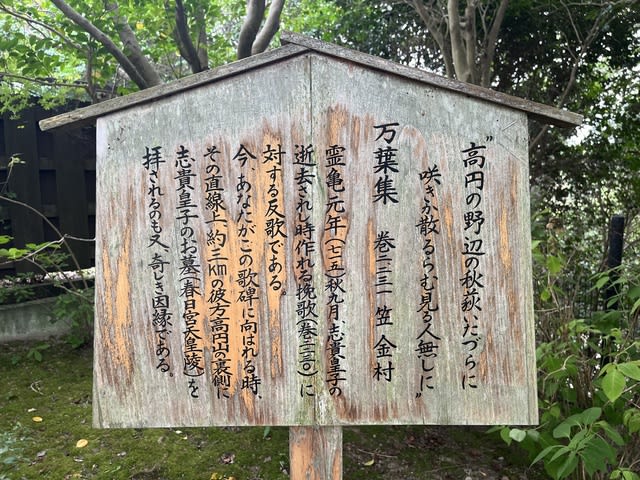 "高円の野辺の秋萩いたづらに
咲きか散るらむ見る人無しに"
万葉集 巻二ー二三一 笠金村
霊亀元年(七一五)秋九月、志貴皇子の
逝去されし時作れる挽歌(巻二ー二三〇)に
対する反歌である。
今、あなたがこの歌碑に向はれる時、
その直線上、約三kmの彼方高円山の裏側に
志貴皇子のお墓(春日宮天皇陵)を
拝されるのも又、奇しき因縁である。